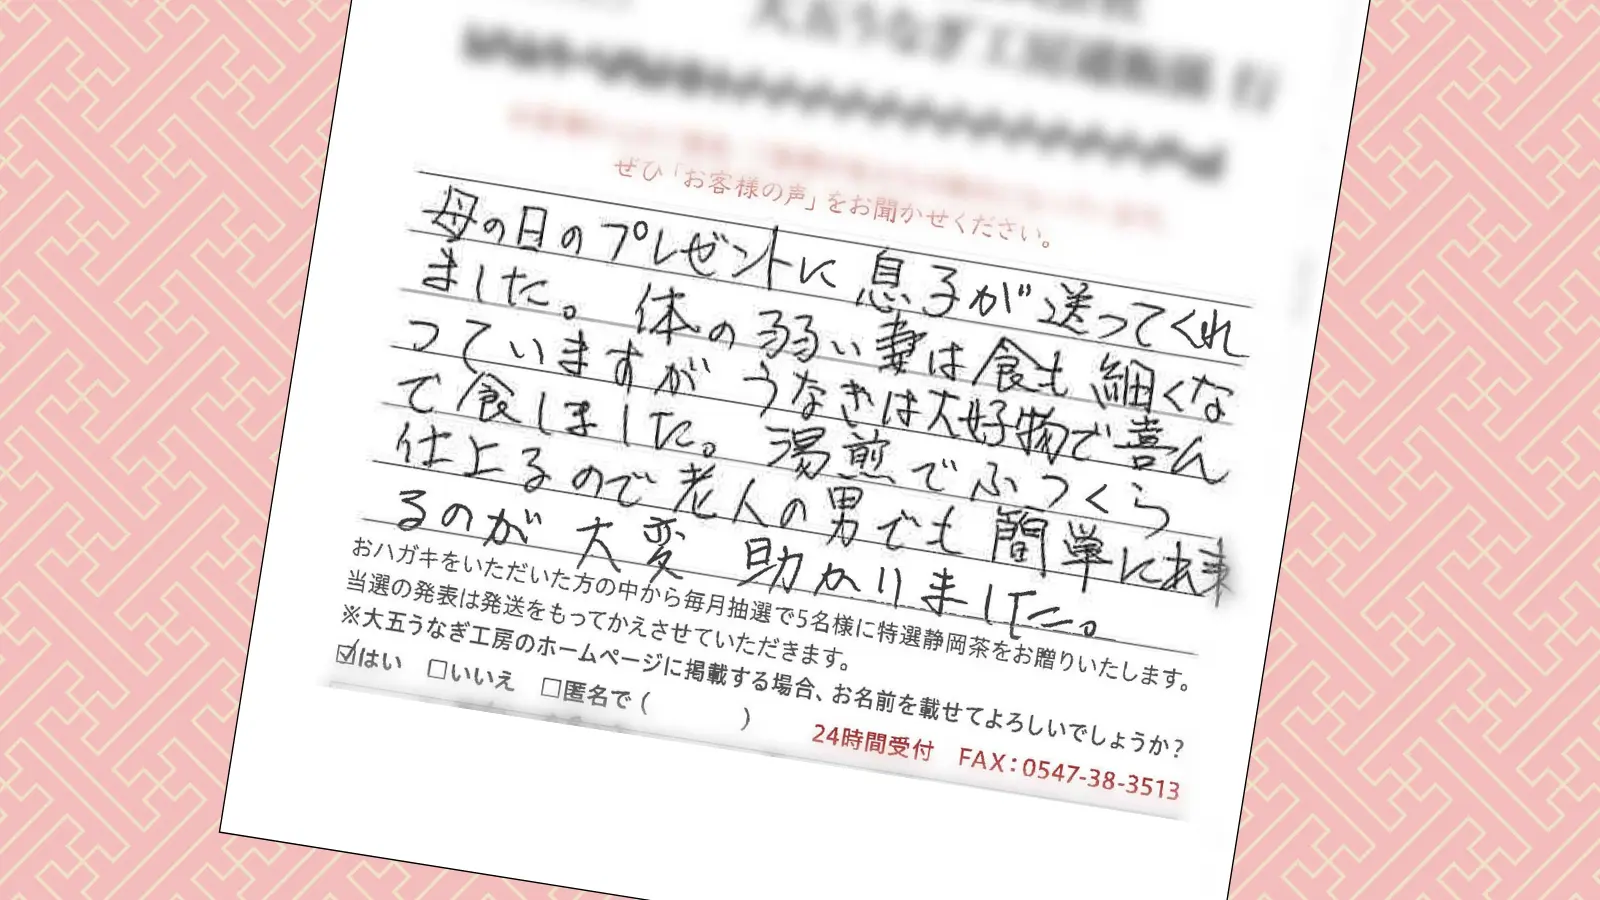 大五うなぎ工房通販係 行
ぜひ「お客様の声」をお聞かせください。
母の日のプレゼントに息子が送ってくれ
ました。体の弱い妻は食も細くな
っていますがうなぎは大好物で喜ん
で食しました。湯煎でふっくら
仕上るので老人の男でも簡単に出来
るのが大変助かりました。
おハガキをいただいた方の中から毎月抽選で5名様に特選静岡茶をお贈りいたします。
当選の発表は発送をもってかえさせていただきます。
※大五うなぎ工房のホームページに掲載する場合、お名前を載せてよろしいでしょうか？
☑はい □いいえ □匿名で( )
24時間受付 FAX：0547-38-3513